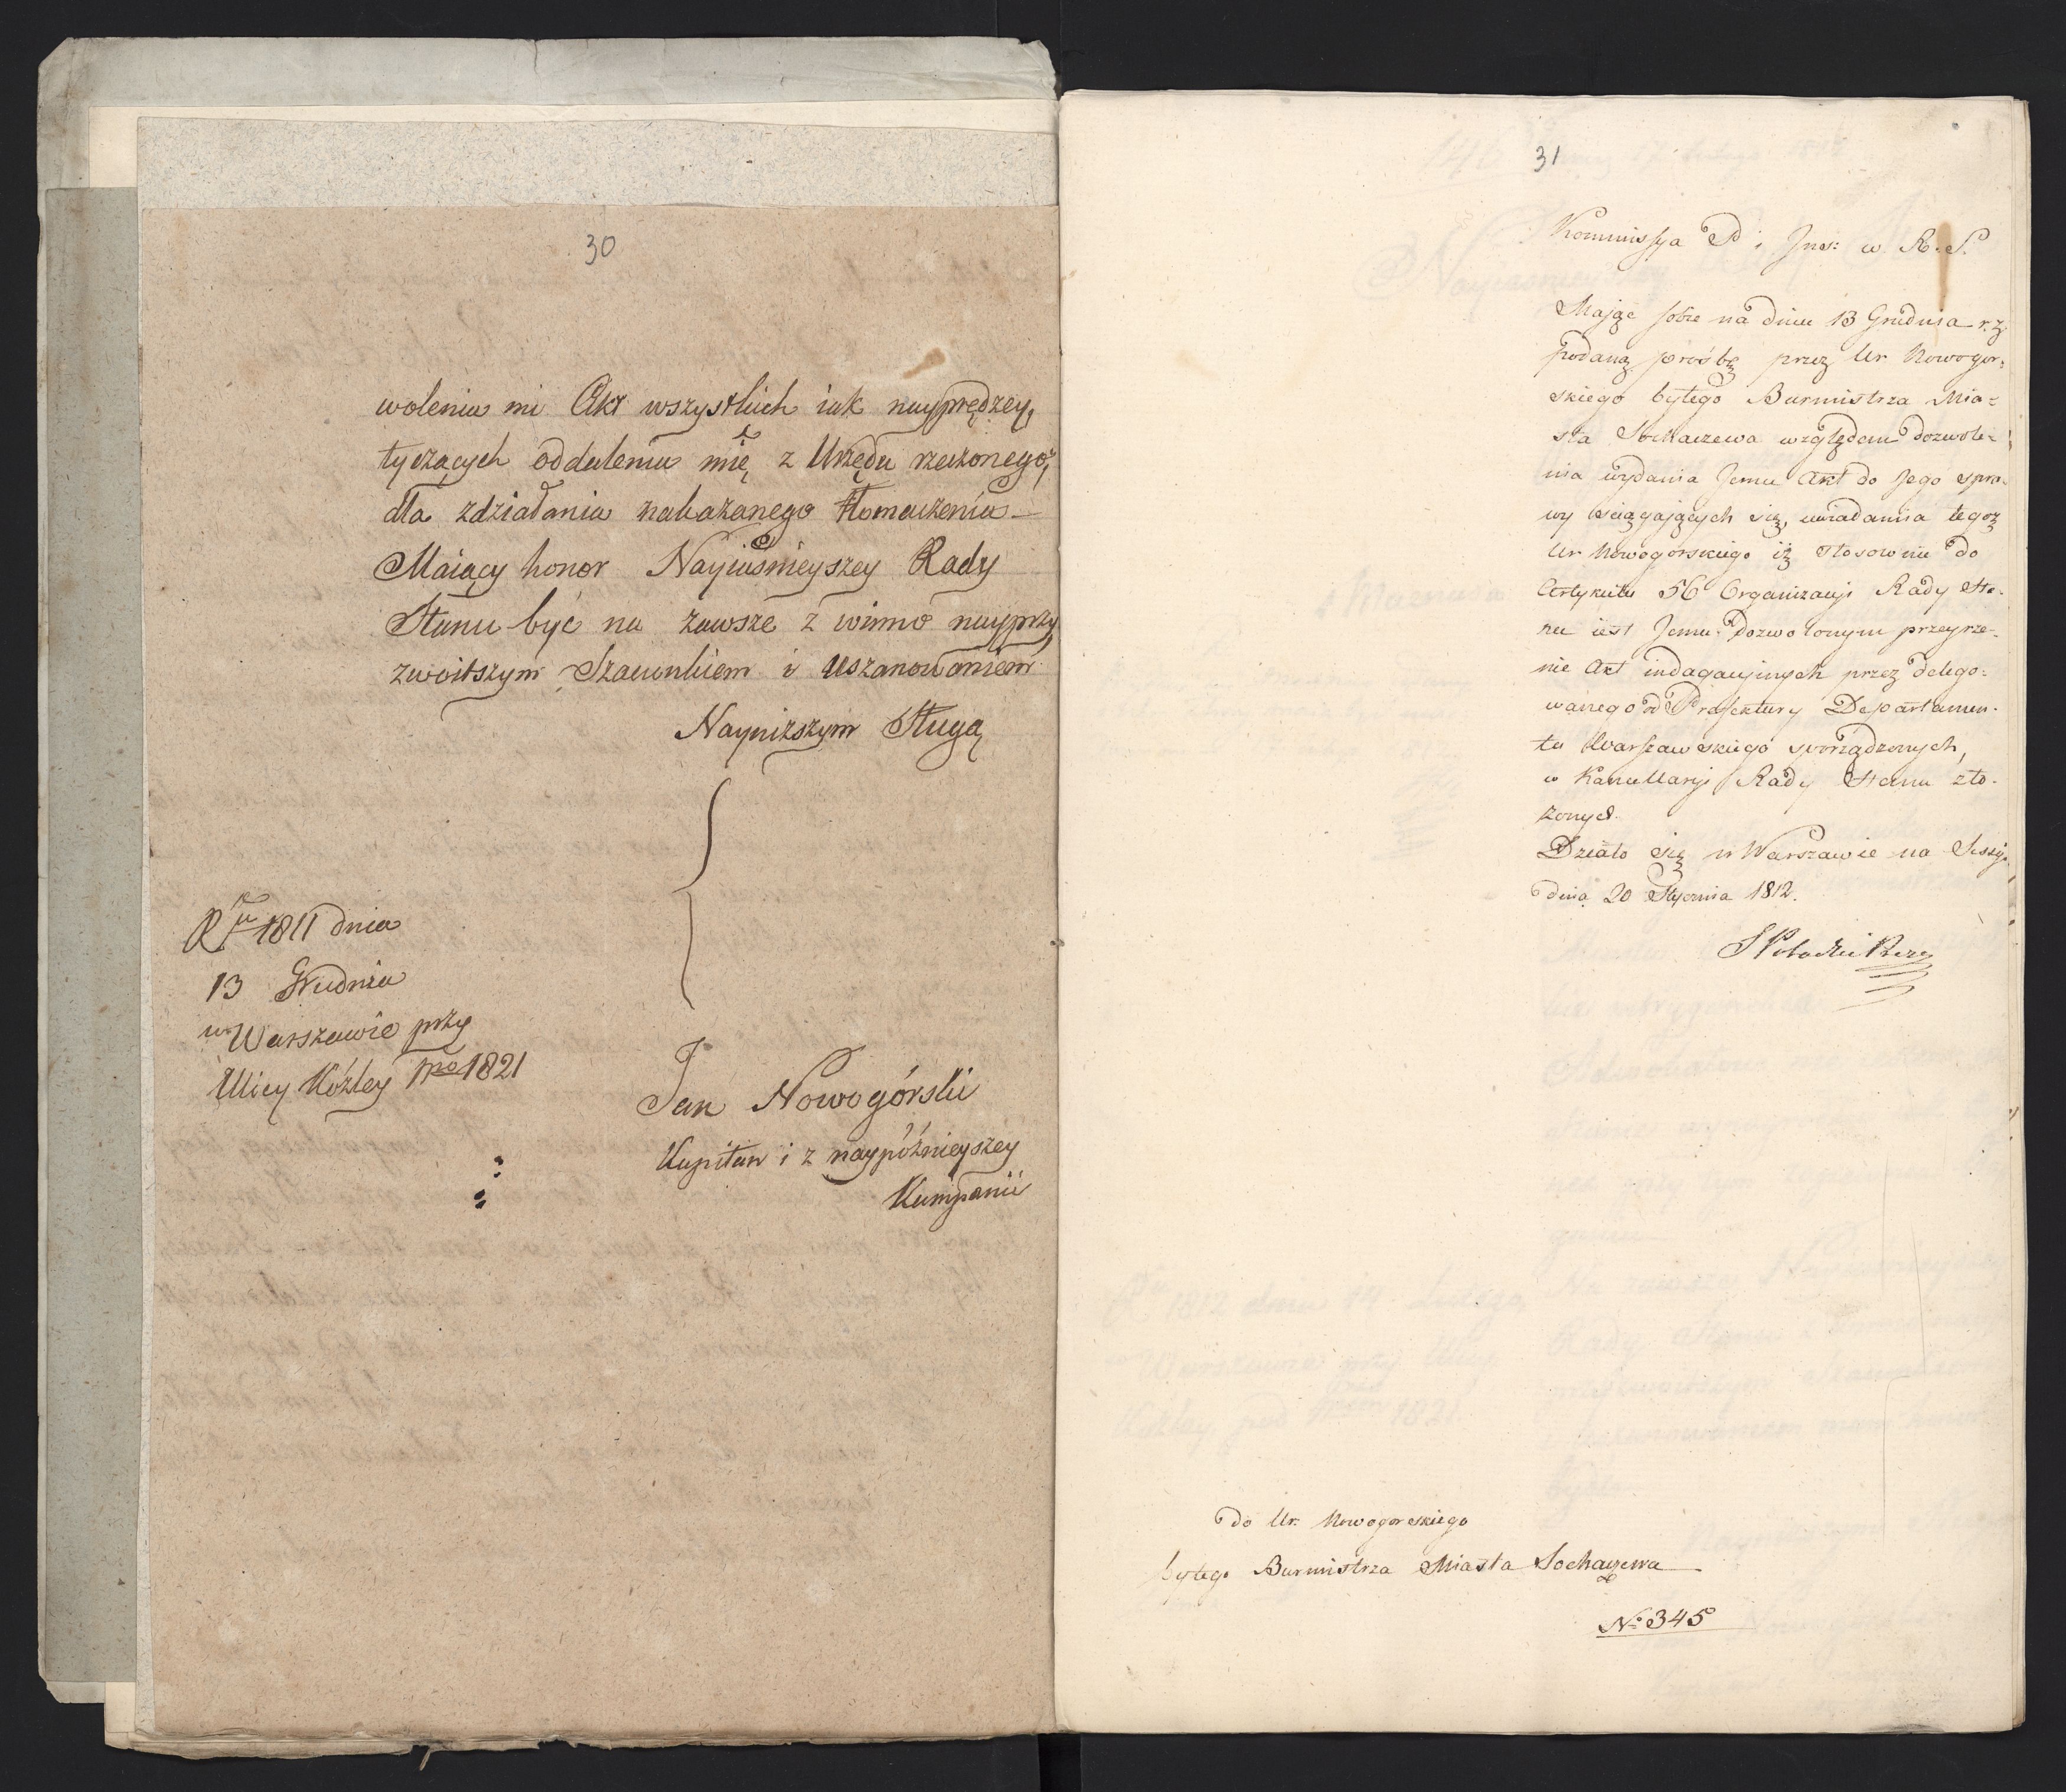 30
wolenia mi Akt wszystkich iak nayprędzey,
tyczących oddalenia mię z Urzędu rzeczonego,
dla zdziałania nakazanego tłomaczenia —
Maiący honor Nayiaśnieyszey Rady
Stanu być na zawsze z winno nayprzy,
zwoitszym Szacunkiem i Uszanowaniem
Nayniższym Sługą
Rku 1811 dnia
13 Grudnia
w Warszawie przy
Ulicy Kóźley Nro 1821
Jan Nowogórski
Kapitan i z naypóźnieyszey
Kampanii
31
Kommissya P i Ins: w R. S.
Mając sobie na dniu 13 Grudnia r. z
podaną prośbę przez Ur Nowogor-
skiego byłego Burmistrza Mia-
sta Sochaczewa względem dozwole-
nia wydania Jemu Akt do Jego spra-
wy ściągających się, uwiadamia tegoż
Ur Nowogorskiego iż stosownie do
Artykułu 56 Organizacyi Rady Sta-
nu iest Jemu dozwolonym przeyrze-
nie Akt indagacyinych przez delego-
wanego od Prefektury Departamen-
tu Warszawskiego sporządzonych,
w Kancellaryi Rady Stanu zło-
żonych.
Działo się w Warszawie na Sessyi
dnia 20 Stycznia 1812.
do Ur. Nowogorskiego
byłego Burmistrza Miasta Sochaczewa
No 345